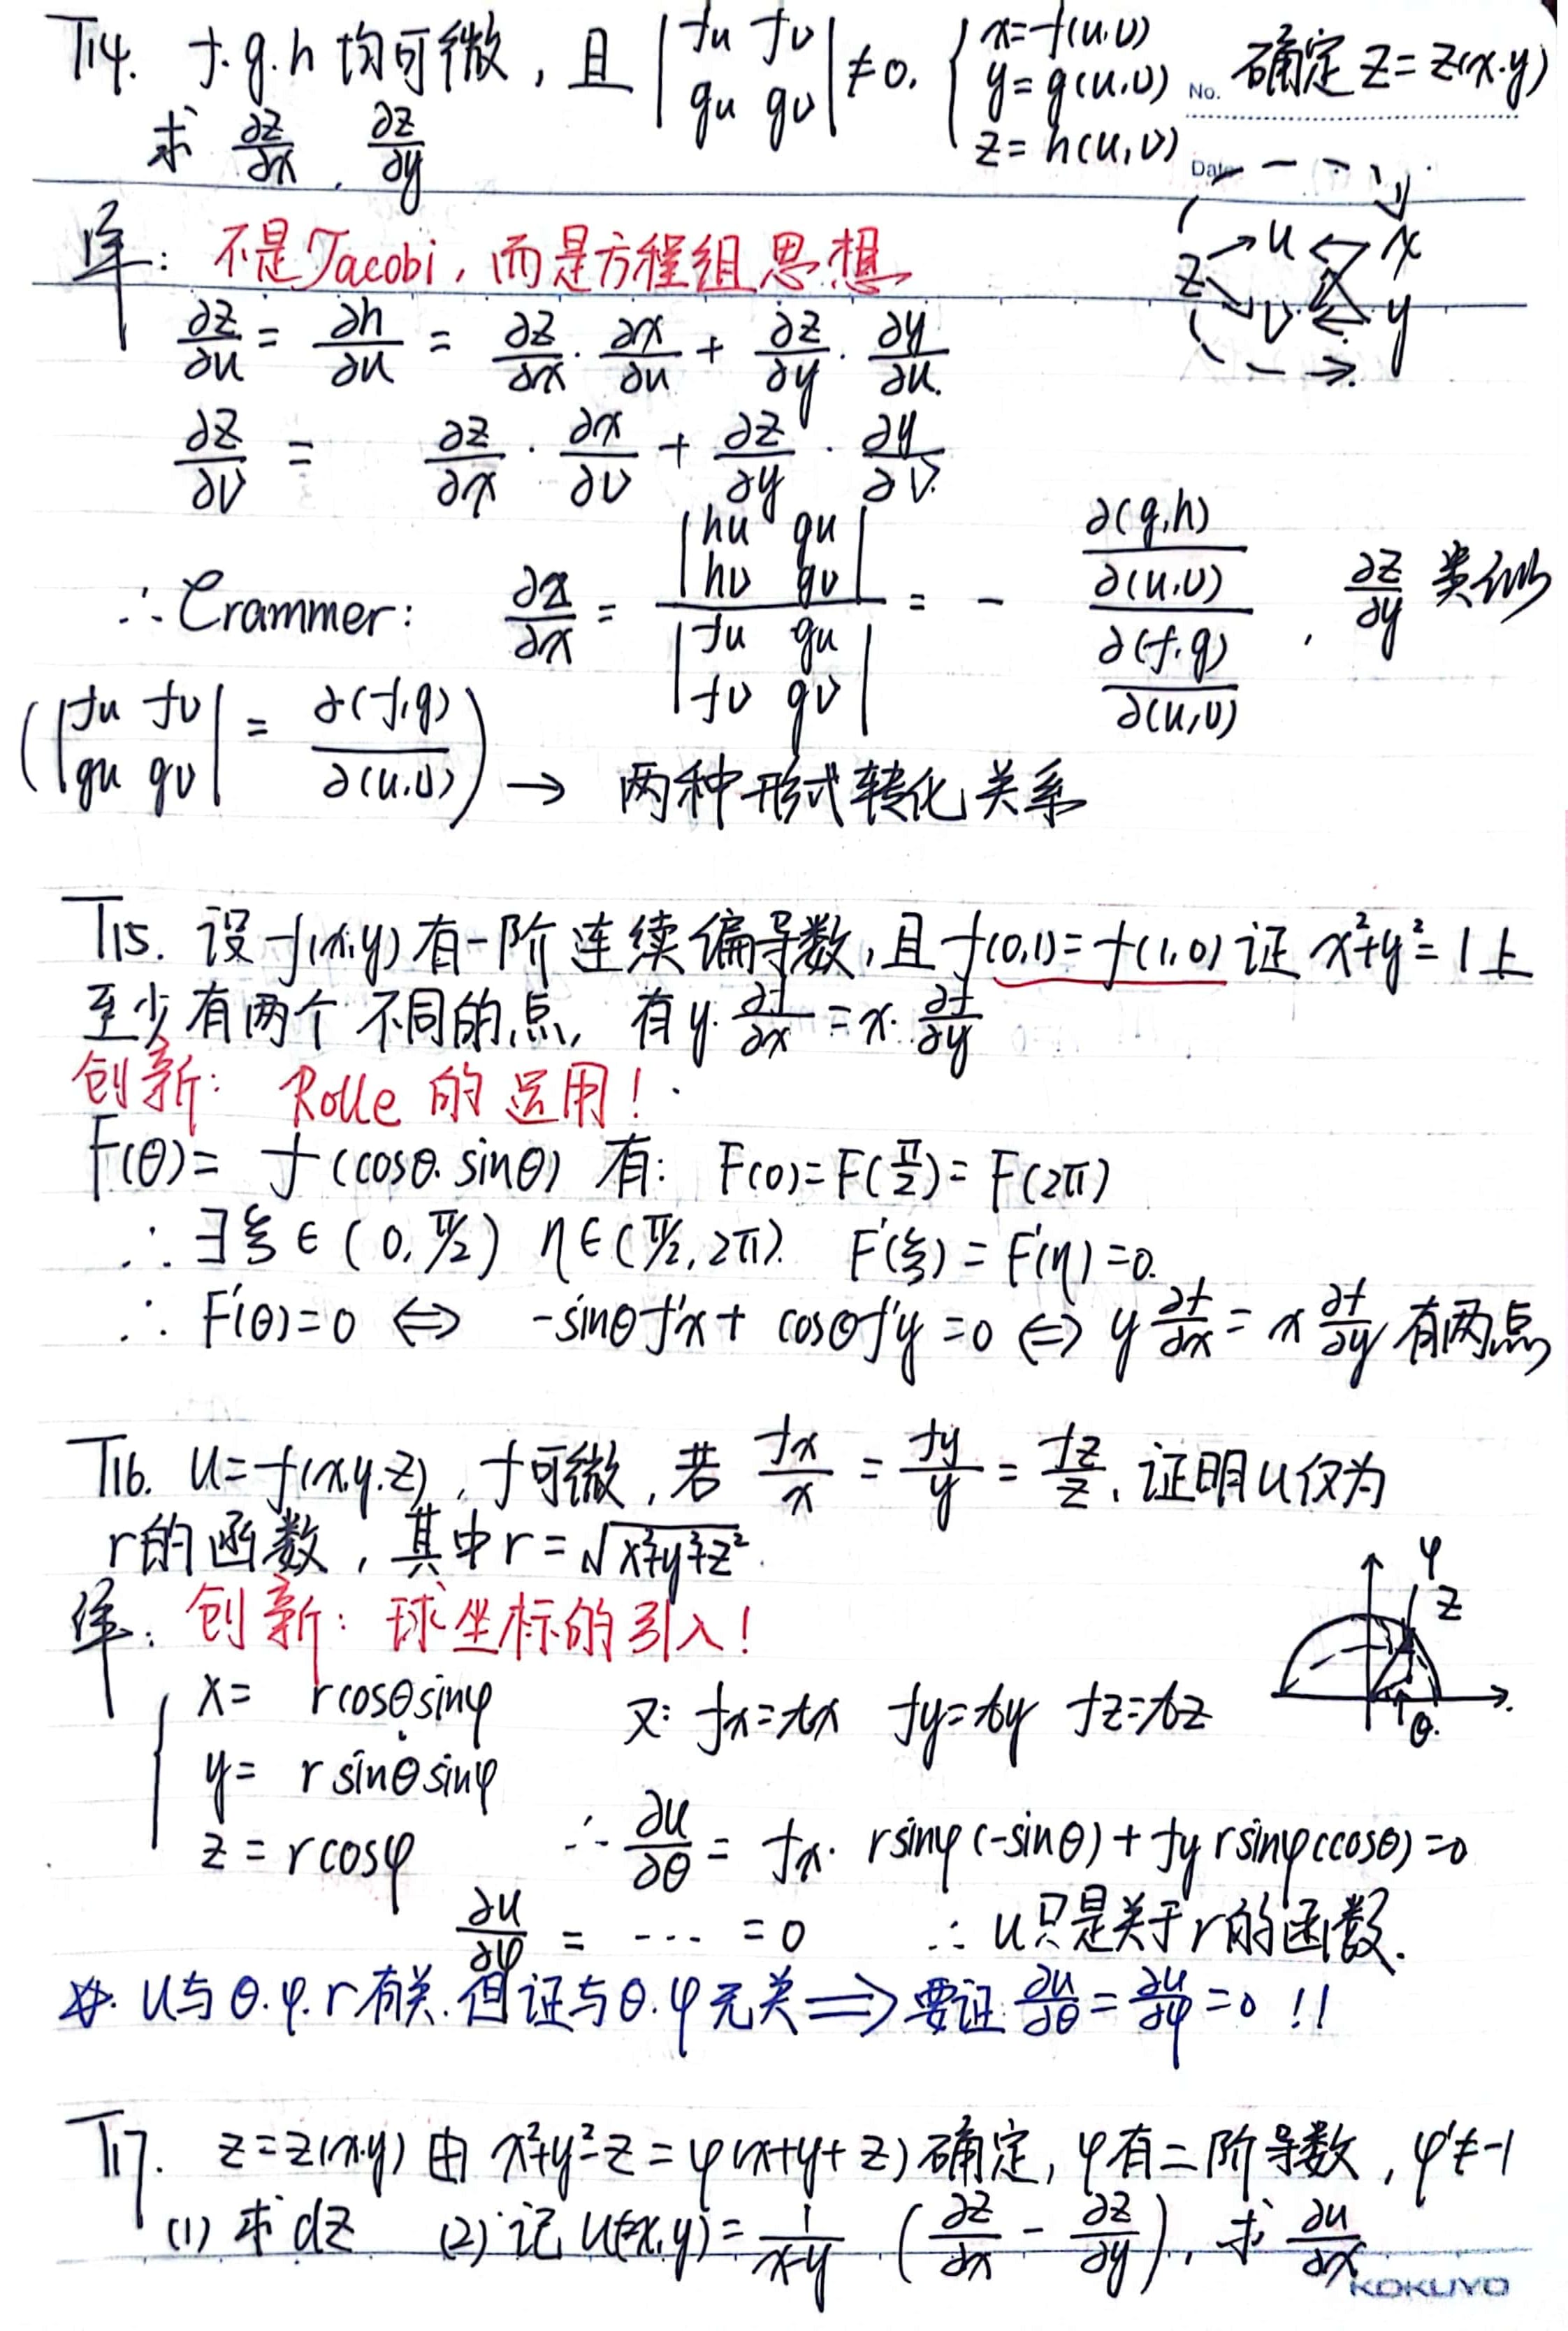 T14. f.g.h 均可微，且 |fu fv; gu gv| ≠0. { x=f(u.v) y=g(u.v) z=h(u,v) 确定 z=z(x.y)
No.
Date
求 ∂z/∂x . ∂z/∂y
解: 不是Jacobi，而是方程组思想
z u v x y
∂z/∂u = ∂h/∂u = ∂z/∂x · ∂x/∂u + ∂z/∂y · ∂y/∂u.
∂z/∂v = ∂z/∂x · ∂x/∂v + ∂z/∂y · ∂y/∂v.
∴ Crammer: ∂z/∂x = |hu gu; hv gv| / |fu gu; fv gv| = - (∂(g,h)/∂(u,v)) / (∂(f.g)/∂(u,v)) , ∂z/∂y 类似
( |fu fv; gu gv| = ∂(f,g)/∂(u.v) ) → 两种形式转化关系
T15. 设 f(x,y) 有一阶连续偏导数,且 f(0,1)=f(1,0) 证 x²+y²=1上
至少有两个不同的点, 有 y·∂f/∂x = x·∂f/∂y
创新: Rolle 的运用!
F(θ)= f(cosθ.sinθ) 有: F(0)=F(π/2)=F(2π)
∴ ∃ξ∈(0,π/2) η∈(π/2,2π). F'(ξ)=F'(η)=0.
∴ F'(θ)=0 ⇔ -sinθf'x+ cosθf'y=0 ⇔ y ∂f/∂x = x ∂f/∂y 有两点
T16. u=f(x,y.z), f可微,若 fx/x = fy/y = fz/z, 证明u仅为
r的函数，其中r=√x²+y²+z².
解: 创新: 球坐标的引入!
φ z θ.
{ x= rcosθsinφ 又: fx=tx fy=ty fz=tz
y= rsinθsinφ
z = rcosφ ∴ ∂u/∂θ = fx· rsinφ(-sinθ)+fy rsinφ(cosθ)=0
∂u/∂φ = ... =0 ∴ u只是关于r的函数.
☆. u与θ.φ.r有关.但证与θ.φ无关⟹要证 ∂u/∂θ=∂u/∂φ=0 !!
T17. z=z(x.y) 由 x²+y²-z=φ(x+y+z)确定, φ有二阶导数, φ'≠-1
(1) 求dz (2) 记 u(x,y)=1/(x-y) (∂z/∂x - ∂z/∂y), 求 ∂u/∂x
KOKUYO